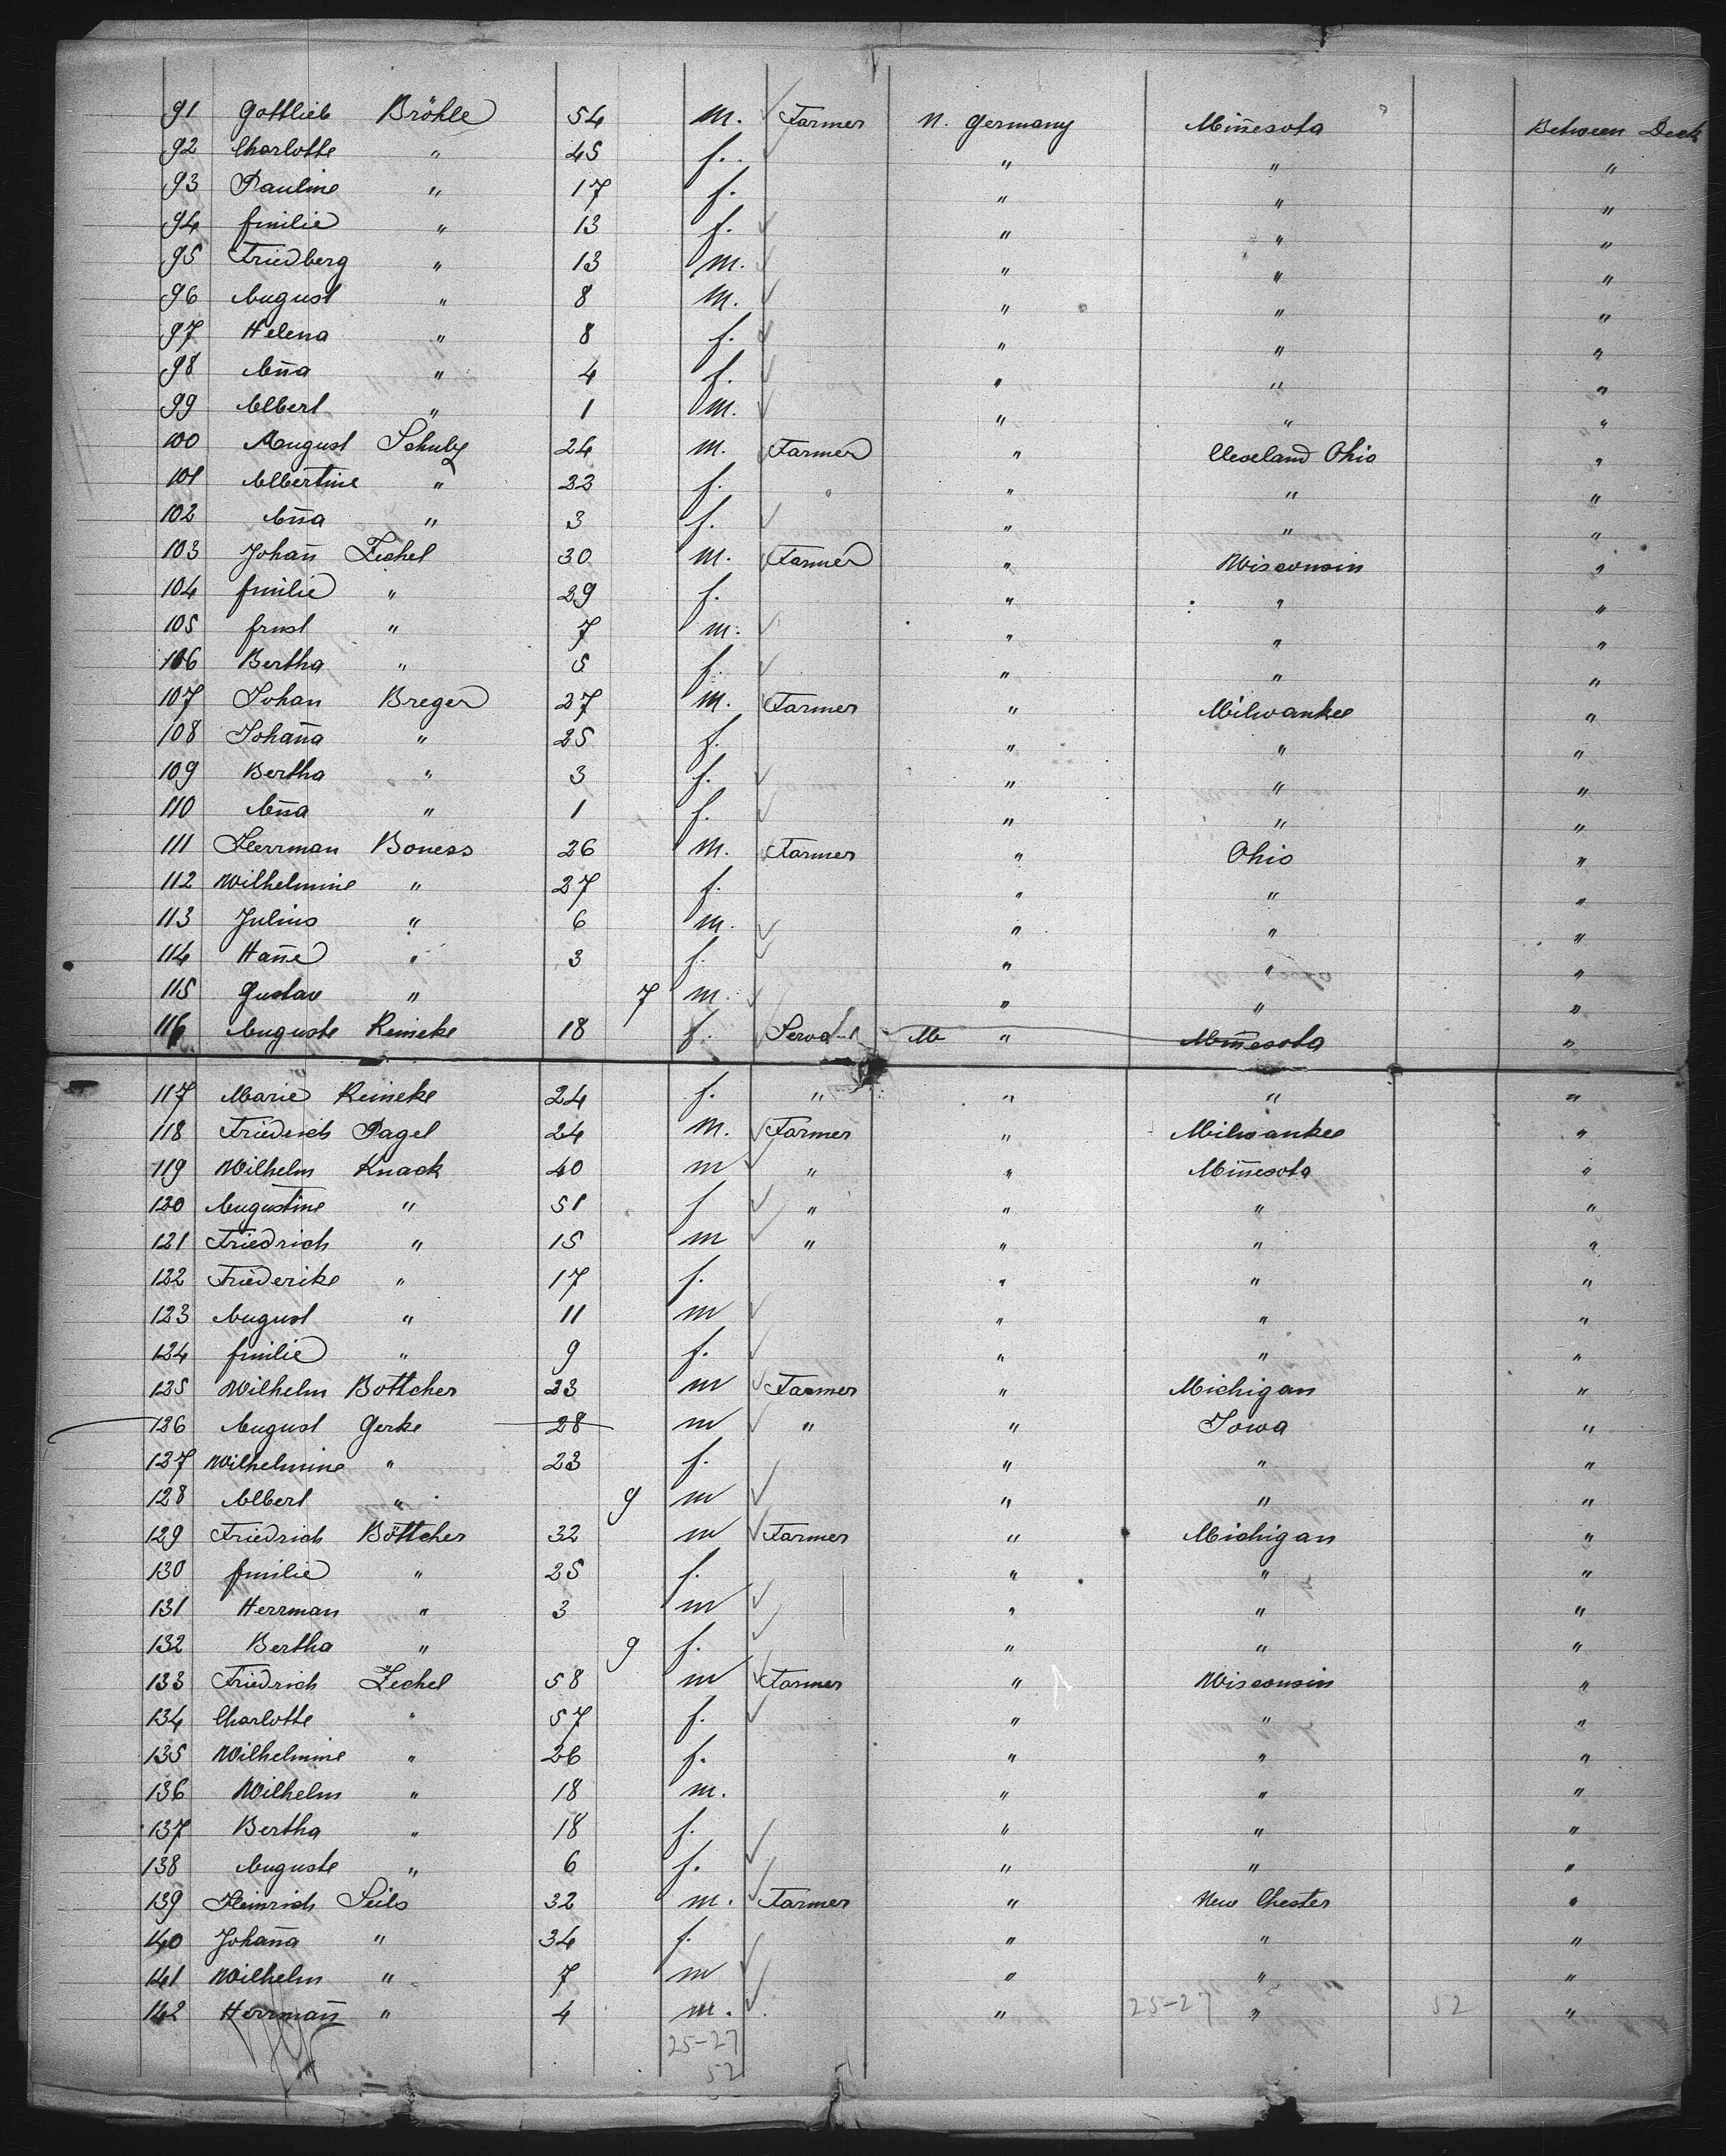 91 Gottlieb Bröhle 54 m. Farmer N. Germany Minnesota Between Deck
92 Charlotte " 45 f. " " "
93 Pauline " 17 f. " " "
94 Emilie " 13 f. " " "
95 Friedberg " 13 m. " " "
96 August " 8 m. " " "
97 Helena " 8 f. " " "
98 Am̄a " 4 f. " " "
99 Albert " 1 m. " " "
100 August Schulz 24 m. Farmer " Cleveland Ohio "
101 Albertine " 22 f. " " "
102 An̄a " 3 f. " " "
103 Johan̄ Zechel 30 m. Farmer " Wisconsin "
104 Emilie " 29 f. " " "
105 Ernst " 7 m. " " "
106 Bertha " 5 f. " " "
107 Johan Breger 27 m. Farmer " Milwaukee "
108 Johan̄a " 25 f. " " "
109 Bertha " 3 f. " " "
110 An̄a " 1 f. " " "
111 Herrman Boness 26 m. Farmer " Ohio "
112 Wilhelmine " 27 f. " " "
113 Julius " 6 m. " " "
114 Han̄e " 3 f. " " "
115 Gustav " 7 m. " " "
116 Auguste Reineke 18 f. " Min̄esota "
117 Marie Reineke 24 f. " " " "
118 Friedrich Pagel 24 m. Farmer " Milwaukee "
119 Wilhelm Knack 40 m " " Min̄esota "
120 Augustine " 51 f " " " "
121 Friedrich " 15 m " " " "
122 Friederike " 17 f. " " "
123 August " 11 m " " "
124 Emilie " 9 f. " " "
125 Wilhelm Bottcher 23 m Farmer " Michigan "
126 August Gerke 28 m " " Iowa "
127 Wilhelmine " 23 f. " " "
128 Albert " 9 m " " "
129 Friedrich Böttcher 32 m Farmer " Michigan "
130 Emilie " 25 f. " " "
131 Herrman " 3 m " " "
132 Bertha " 9 f. " " "
133 Friedrich Zechel 58 m Farmer " Wisconsin "
134 Charlotte " 57 f. " " "
135 Wilhelmine " 26 f. " " "
136 Wilhelm " 18 m. " " "
137 Bertha " 18 f. " " "
138 Auguste " 6 f. " " "
139 Heinrich Seils 32 m. Farmer " New Chester "
140 Johan̄a " 34 f. " " "
141 Wilhelm " 7 m " " "
142 Herrman̄ " 4 m. " 25-27 " 52 "
25-27
52